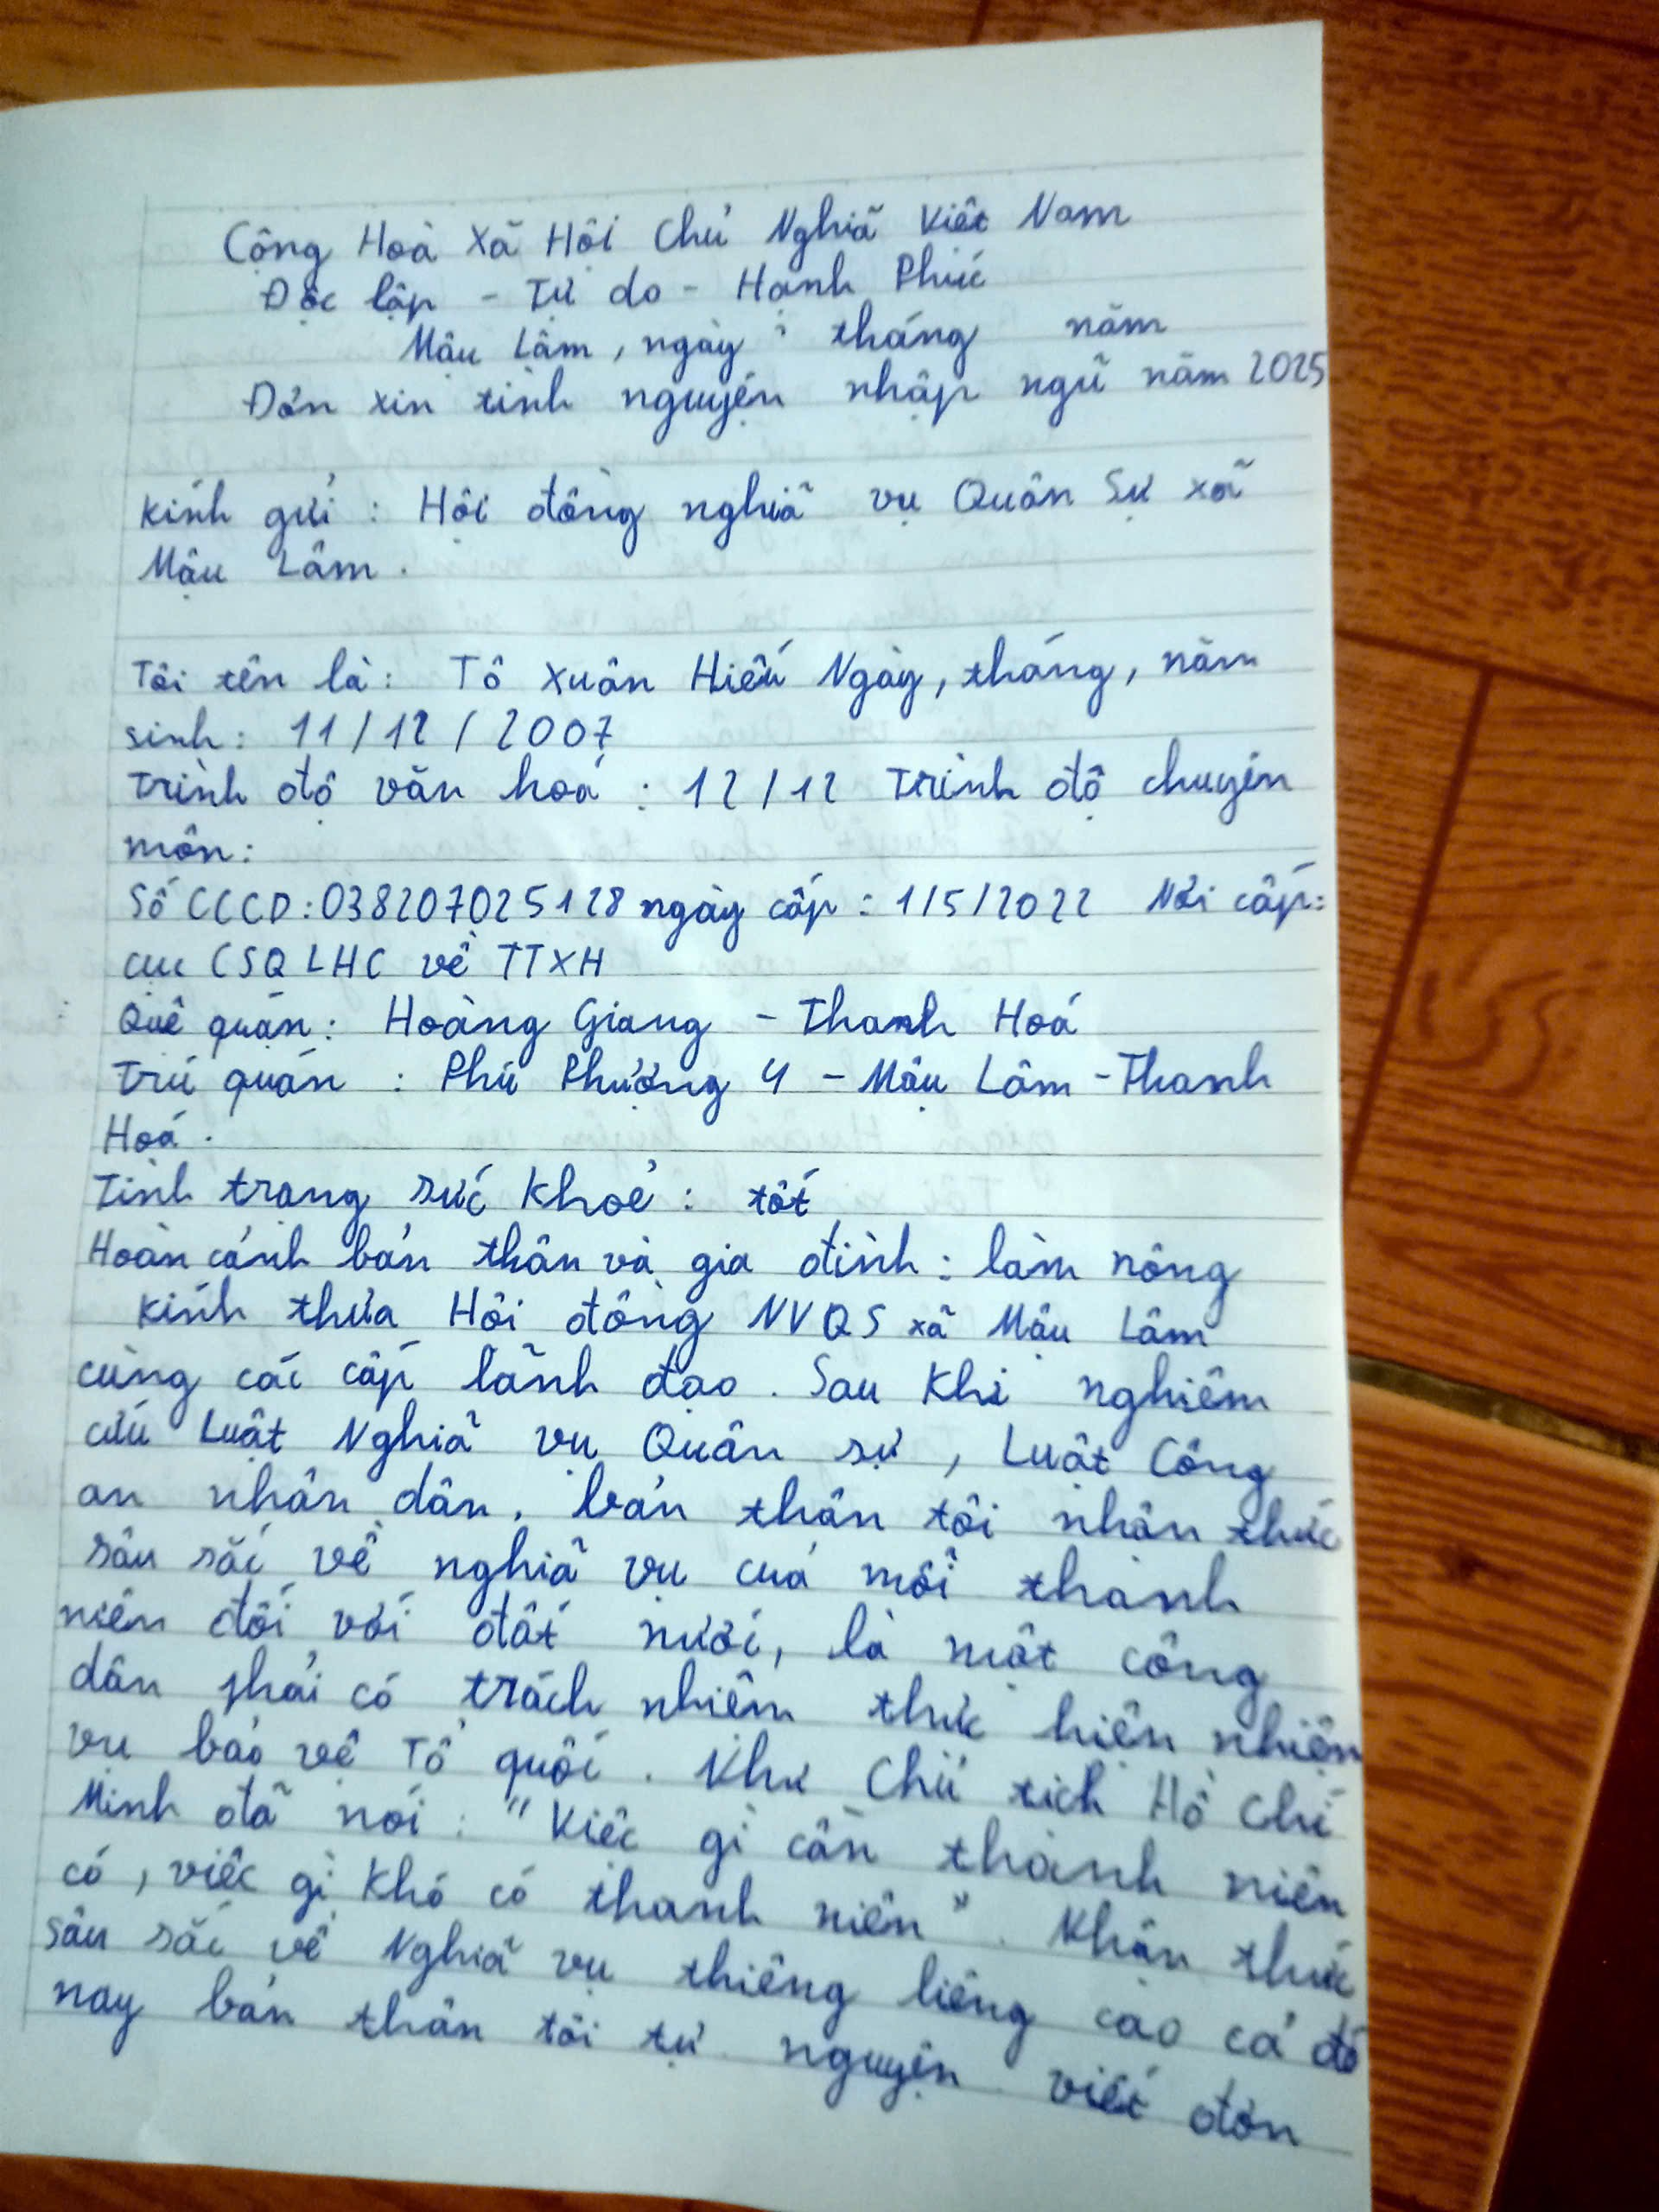 Cộng Hoà Xã Hội Chủ Nghĩã Việt Nam
Độc lập - Tự do - Hạnh Phúc
Mậu Lâm, ngày tháng năm
Đơn xin tình nguyện nhập ngũ năm 2025
Kính gửi : Hội đồng nghĩã vụ Quân Sự xã
Mậu Lâm .
Tôi tên là: Tô Xuân Hiếu Ngày, tháng, năm
sinh: 11/12/2007
Trình độ văn hoá : 12/12 Trình độ chuyên
môn:
Số CCCD: 038207025128 ngày cấp : 1/5/2022 Nơi cấp:
cục CSQLHC về TTXH
Quê quán: Hoàng Giang - Thanh Hoá
Trú quán : Phú Phượng 4 - Mậu Lâm - Thanh
Hoá .
Tình trạng sức khoẻ : tốt
Hoàn cảnh bản thân và gia đình : làm nông
Kính thưa Hội đồng NVQS xã Mậu Lâm
cùng các cấp lãnh đạo . Sau khi nghiêm
cứu Luật Nghĩã vụ Quân sự , Luật Công
an nhân dân , bản thân tôi nhận thức
sâu sắc về nghĩã vụ của mỗi thanh
niên đối với đất nước, là một công
dân phải có trách nhiệm thực hiện nhiệm
vụ bảo vệ Tổ quốc . Như Chủ tịch Hồ Chí
Minh đã nói : "Việc gì cần thanh niên
có , việc gì khó có thanh niên" . Nhận thức
sâu sắc về Nghĩã vụ thiêng liêng cao cả đó
nay bản thân tôi tự nguyện viết đơn